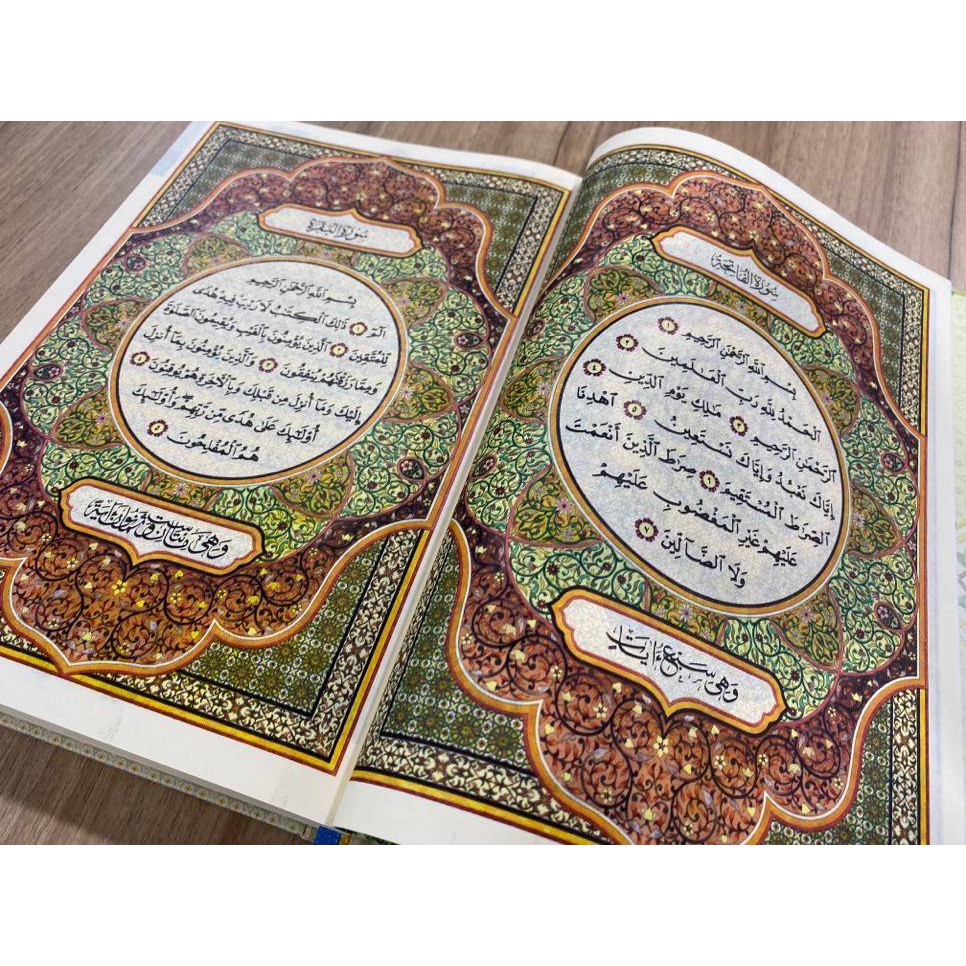 سُورَةُ الْفَاتِحَةِ
بِسْمِ اللَّهِ الرَّحْمَٰنِ الرَّحِيمِ ١
الْحَمْدُ لِلَّهِ رَبِّ الْعَٰلَمِينَ ٢
الرَّحْمَٰنِ الرَّحِيمِ ٣ مَٰلِكِ يَوْمِ الدِّينِ ٤
إِيَّاكَ نَعْبُدُ وَإِيَّاكَ نَسْتَعِينُ ٥ اهْدِنَا
الصِّرَٰطَ الْمُسْتَقِيمَ ٦ صِرَٰطَ الَّذِينَ أَنْعَمْتَ
عَلَيْهِمْ غَيْرِ الْمَغْضُوبِ عَلَيْهِمْ
وَلَا الضَّآلِّينَ ٧
وَهِيَ سَبْعُ ءَايَاتٍ
سُورَةُ الْبَقَرَةِ
بِسْمِ اللَّهِ الرَّحْمَٰنِ الرَّحِيمِ
الٓمٓ ١ ذَٰلِكَ الْكِتَٰبُ لَا رَيْبَ فِيهِ هُدًى
لِلْمُتَّقِينَ ٢ الَّذِينَ يُؤْمِنُونَ بِالْغَيْبِ وَيُقِيمُونَ الصَّلَوٰةَ
وَمِمَّا رَزَقْنَٰهُمْ يُنْفِقُونَ ٣ وَالَّذِينَ يُؤْمِنُونَ بِمَآ أُنْزِلَ
إِلَيْكَ وَمَآ أُنْزِلَ مِنْ قَبْلِكَ وَبِالْآخِرَةِ هُمْ يُوقِنُونَ ٤
أُولَٰٓئِكَ عَلَىٰ هُدًى مِنْ رَبِّهِمْ وَأُولَٰٓئِكَ
هُمُ الْمُفْلِحُونَ ٥
وَهِيَ مِئَتَانِ وَسِتٌّ وَثَمَانُونَ ءَايَةً